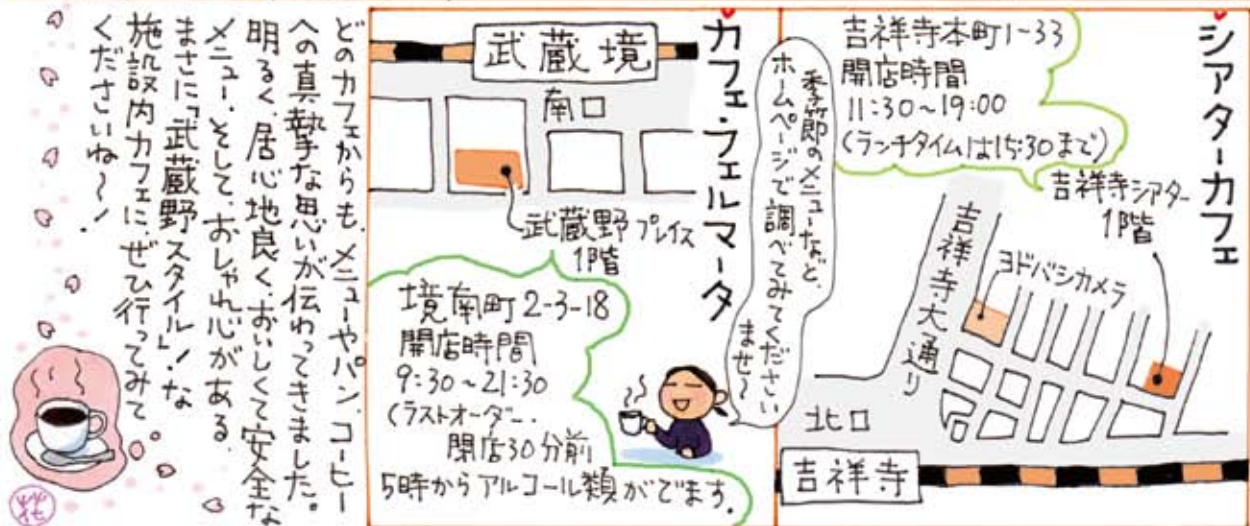 シアターカフェ
吉祥寺本町1-33
開店時間
11:30~19:00
(ランチタイムは15:30まで)
吉祥寺シアター
1階
ヨドバシカメラ
吉祥寺大通り
北口
吉祥寺
季節のメニューなど、
ホームページで調べてみてください
ませ~
カフェ・フェルマータ
武蔵境
南口
武蔵野プレイス
1階
境南町2-3-18
開店時間
9:30~21:30
(ラストオーダー、
閉店30分前
5時からアルコール類がでます。
どのカフェからも、メニューやパン、コーヒー
への真摯な思いが伝わってきました。
明るく、居心地良く、おいしくて安全な
メニュー、そして、おしゃれ心がある、
まさに「武蔵野スタイル」!な
施設内カフェに、ぜひ行ってみて
くださいね~!
花